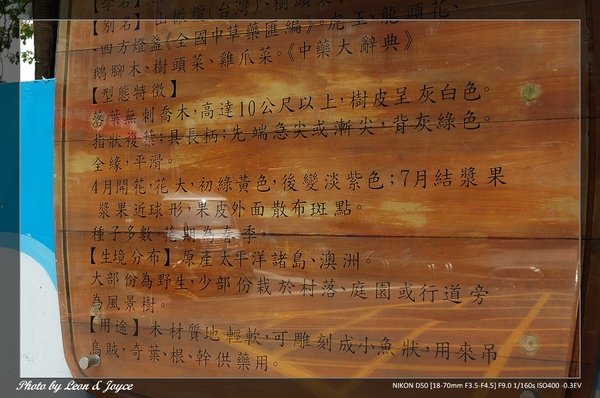 【別名】山橄欖(台灣)、樹頭菜、
、四方燈盞《全國中草藥匯編》。虎王、龍頭花、
鵝腳木、樹頭菜、雞爪菜。《中藥大辭典》
【型態特徵】
落葉無刺喬木，高達10公尺以上，樹皮呈灰白色。
指狀複葉；具長柄；先端急尖或漸尖，背灰綠色。
全緣，平滑。
4月開花，花大，初綠黃色，後變淡紫色；7月結漿果
漿果近球形，果皮外面散布斑點。
種子多數。花期為春季。
【生境分布】原產太平洋諸島、澳洲。
大部份為野生，少部份栽於村落、庭園或行道旁
為風景樹。
【用途】木材質地輕軟，可雕刻成小魚狀，用來吊
烏賊、奇葉、根、幹供藥用。
Photo by Leon & Joyce
NIKON D50 [18-70mm F3.5-F4.5] F9.0 1/160s ISO400 -0.3EV